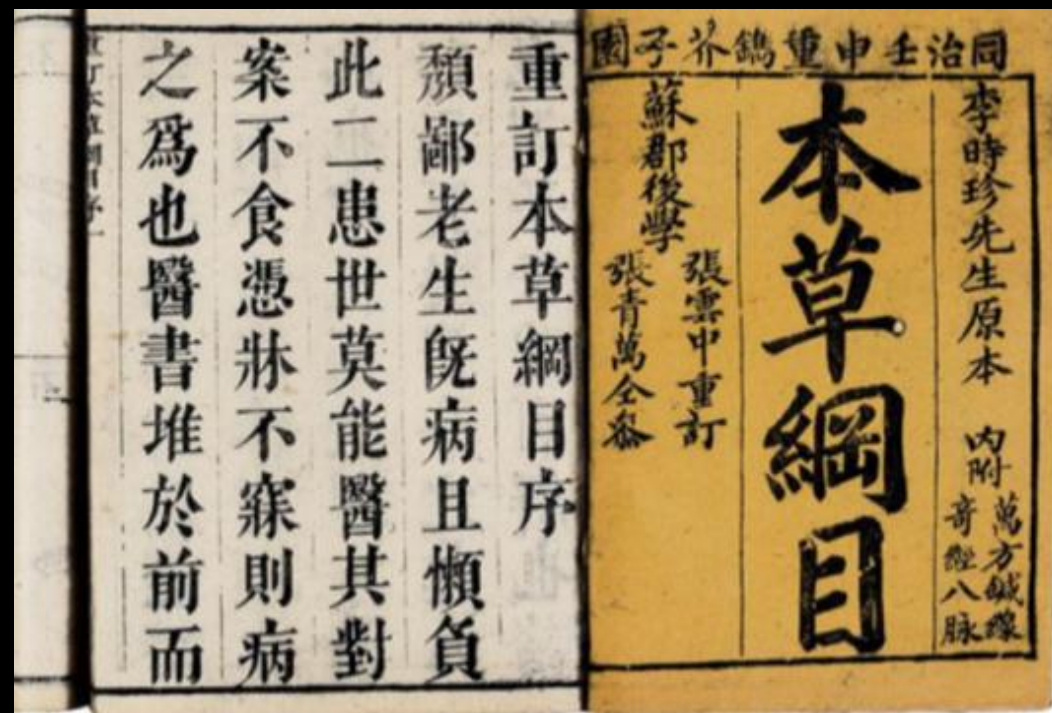 同治壬申重鐫芥子園
李時珍先生原本 内附
萬方鍼線
奇經八脉
本草綱目
蘇郡後學
張雲中重訂
張青萬仝參
重訂本草綱目序
頽鄙老生旣病且懶負
此二患世莫能醫其對
案不食憑牀不寐則病
之爲也醫書堆於前而